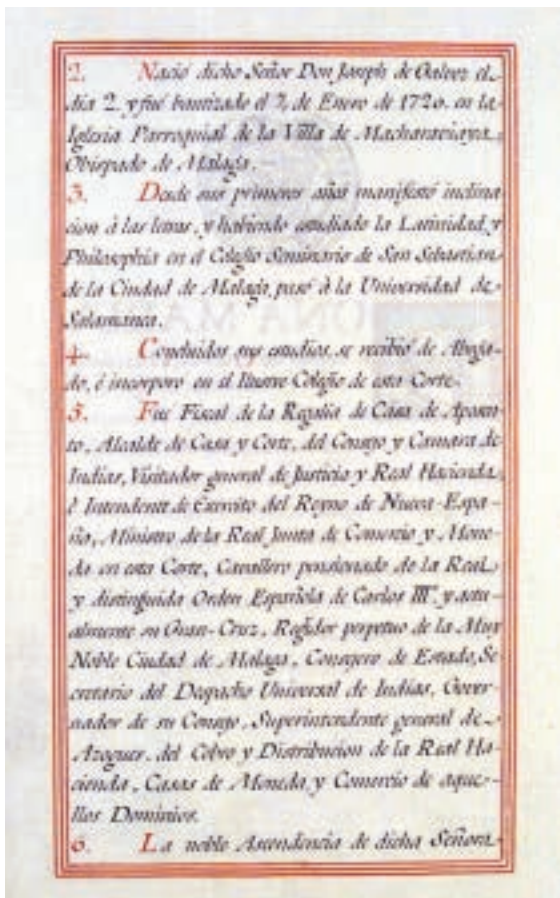 2. Nació dicho Señor Don Joseph de Galvez el
dia 2. y fué bautizado el 7, de Enero de 1720. en la
Iglesia Parroquial de la Villa de Macharaviaya
Obispado de Malaga.
3. Desde sus primeros años manifestó inclina-
cion à las letras, y habiendo estudiado la Latinidad y
Philosophia en el Colegio Seminario de San Sebastian
de la Ciudad de Malaga, pasó à la Universidad de
Salamanca.
4. Concluidos sus estudios, se recibió de Aboga-
do, é incorporo en el Ilustre Colegio de esta Corte.
5. Fue Fiscal de la Regalia de Casa de Aposen-
to, Alcalde de Casa y Corte, del Consejo y Camara de
Indias, Visitador general de Justicia y Real Hacienda
è Intendente de Exercito del Reyno de Nueva-Espa-
ña, Ministro de la Real Junta de Comercio y Mone-
da en esta Corte, Cavallero pensionado de la Real
y distinguida Orden Española de Carlos III. y actu-
almente su Gran-Cruz, Regidor perpetuo de la Muy
Noble Ciudad de Malaga, Consejero de Estado, Se-
cretario del Despacho Universal de Indias, Gover-
nador de su Consejo, Superintendente general de
Azogues, del Cobro y Distribucion de la Real Ha-
cienda, Casas de Moneda y Comercio de aque-
llos Dominios.
6. La noble Ascendencia de dicha Señora